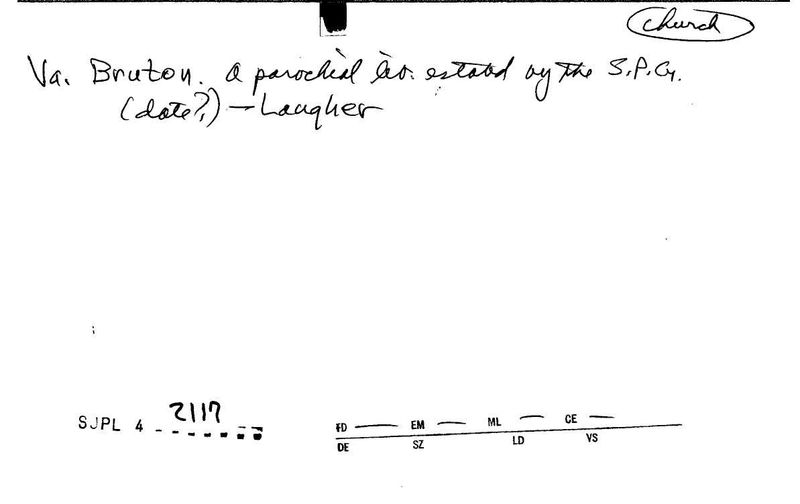 Church
Va. Bruton. A parochial libr. estabd by the S.P.G.
(date?) — Laugher
SJPL 4 - 2117
FD — EM — ML — CE —
DE SZ LD VS